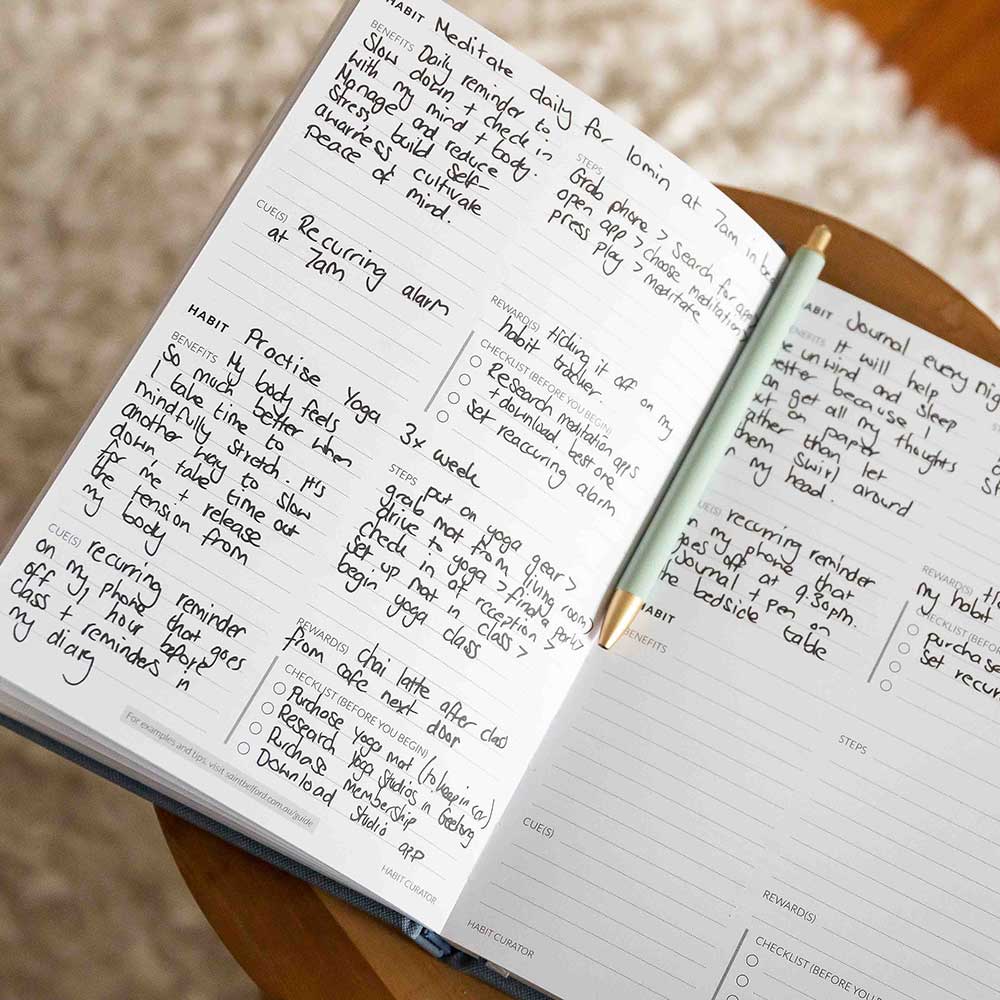 HABIT Meditate daily for 10min at 7am in
BENEFITS Daily reminder to
Slow down + check in
with my mind + body.
Manage and reduce
stress, build self-
awarness, cultivate
peace of mind.
STEPS
Grab phone > search for app >
open app > choose meditation >
press play > meditate
CUE(S) Recurring alarm
at 7am
REWARD(S) ticking it off on my
habit tracker.
CHECKLIST (BEFORE YOU BEGIN)
Research meditation apps
+ download best one
set reaccuring alarm
HABIT Practise Yoga 3x week
BENEFITS My body feels
so much better when
I take time to
mindfully stretch. It's
another way to slow
down, take time out
for me + release
the tension from
my body
STEPS put on yoga gear >
grab mat from living room >
drive to yoga > find a park >
check in at reception >
set up mat in class >
begin yoga class
CUE(S) recurring reminder
on my phone that goes
off 1 hour before
class + reminders in
my diary
REWARD(S) chai latte after class
from cafe next door
CHECKLIST (BEFORE YOU BEGIN)
Purchase yoga mat (to keep in car)
Research Yoga Studios in Geelong
Purchase membership
Download studio app
For examples and tips, visit saintbelford.com.au/guide
HABIT CURATOR
HABIT Journal every
BENEFITS It will help
unwind and sleep
better because I
can get all my thoughts
out on paper
rather than let
them swirl around
in my head.
CUE(S) recurring reminder
on my phone that
goes off at 9.30pm.
Journal + pen on
the bedside table
REWARD(S)
my habit
CHECKLIST
purchase
set
HABIT
BENEFITS
STEPS
CUE(S)
REWARD(S)
CHECKLIST (BEFORE YOU
HABIT CURATOR